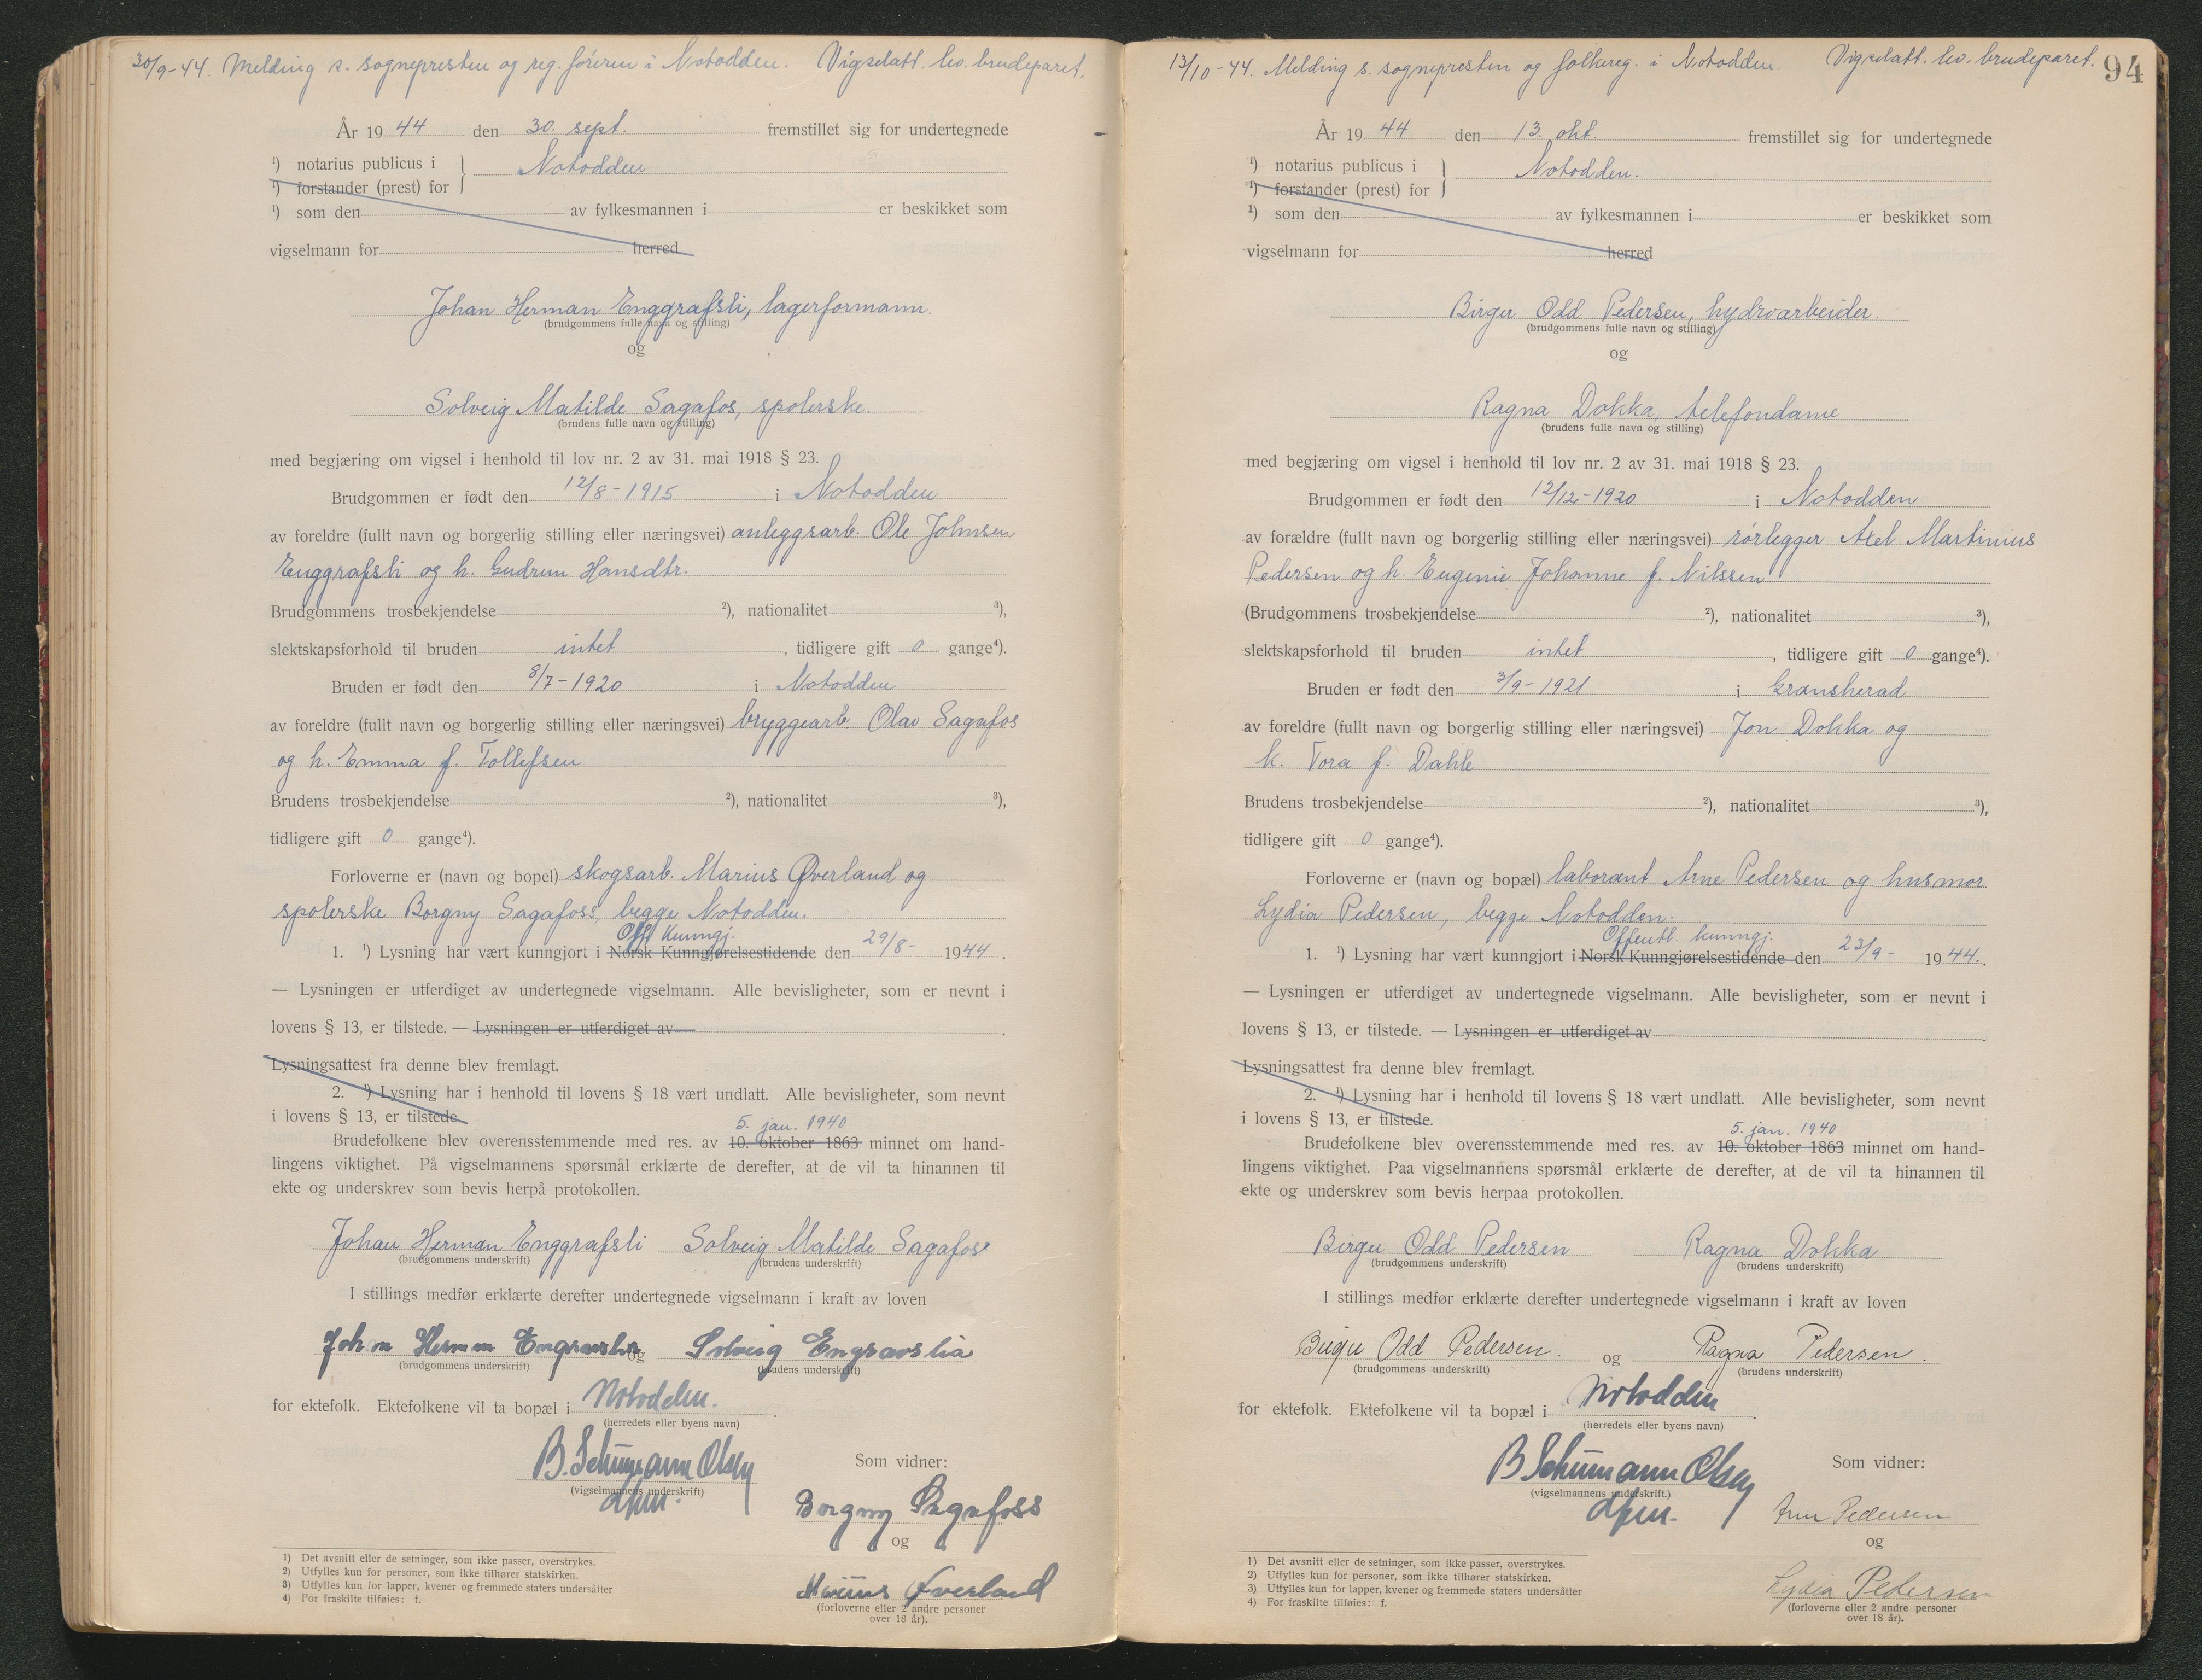 30/9-44. Melding s. sognepresten og reg. føreren i Notodden. Vigselatt. lev. brudeparet.
År 19 44 den 30. sept. fremstillet sig for undertegnede
¹) notarius publicus i } Notodden
¹) forstander (prest) for
¹) som den av fylkesmannen i er beskikket som
vigselmann for herred
Johan Herman Enggrafsli, lagerformann.
(brudgommens fulle navn og stilling)
og
Solveig Matilde Sagafos, spolerske.
(brudens fulle navn og stilling)
med begjæring om vigsel i henhold til lov nr. 2 av 31. mai 1918 § 23.
Brudgommen er født den 12/8-1915 i Notodden
av foreldre (fullt navn og borgerlig stilling eller næringsvei) anleggsarb. Ole Johnsen
Enggrafsli og h. Gudrun Hansdtr.
Brudgommens trosbekjendelse ²), nationalitet ³),
slektskapsforhold til bruden intet , tidligere gift 0 gange⁴).
Bruden er født den 8/7-1920 i Notodden
av foreldre (fullt navn og borgerlig stilling eller næringsvei) bryggearb. Olav Sagafos
og h. Emma f. Tollefsen
Brudens trosbekjendelse ²), nationalitet ³),
tidligere gift 0 gange⁴).
Forloverne er (navn og bopel) skogsarb. Marius Øverland og
spolerske Borgny Sagafoss, begge Notodden.
Offl Kunngj.
1. ¹) Lysning har vært kunngjort i Norsk Kunngjørelsestidende den 29/8- 1944.
— Lysningen er utferdiget av undertegnede vigselmann. Alle bevisligheter, som er nevnt i
lovens § 13, er tilstede. — Lysningen er utferdiget av .
Lysningsattest fra denne blev fremlagt.
2. ¹) Lysning har i henhold til lovens § 18 vært undlatt. Alle bevisligheter, som nevnt
i lovens § 13, er tilstede.
5. jan. 1940
Brudefolkene blev overensstemmende med res. av 10. oktober 1863 minnet om hand-
lingens viktighet. På vigselmannens spørsmål erklærte de derefter, at de vil ta hinannen til
ekte og underskrev som bevis herpå protokollen.
Johan Herman Enggrafsli Solveig Matilde Sagafoss
(brudgommens underskrift) (brudens underskrift)
I stillings medfør erklærte derefter undertegnede vigselmann i kraft av loven
Johan Herman Engravslia og Solveig Engravslia
(brudgommens underskrift) (brudens underskrift)
for ektefolk. Ektefolkene vil ta bopæl i Notodden.
(herredets eller byens navn)
B. Schumann Olsen
(vigselmannens underskrift)
Som vidner:
Borgny Sagafoss
og
Marius Øverland
(forloverne eller 2 andre personer
over 18 år).
1) Det avsnitt eller de setninger, som ikke passer, overstrykes.
2) Utfylles kun for personer, som ikke tilhører statskirken.
3) Utfylles kun for lapper, kvener og fremmede staters undersåtter
4) For fraskilte tilføies: f.
13/10-44. Melding s. sognepresten og folkereg. i Notodden. Vigselatt. lev. brudeparet. 94
År 19 44 den 13. okt. fremstillet sig for undertegnede
¹) notarius publicus i } Notodden.
¹) forstander (prest) for
¹) som den av fylkesmannen i er beskikket som
vigselmann for herred
Birger Odd Pedersen, hydroarbeider.
(brudgommens fulle navn og stilling)
og
Ragna Dokka, telefondame
(brudens fulle navn og stilling)
med begjæring om vigsel i henhold til lov nr. 2 av 31. mai 1918 § 23.
Brudgommen er født den 12/12-1920 i Notodden
av forældre (fullt navn og borgerlig stilling eller næringsvei) rørlegger Axel Martinius
Pedersen og h. Eugenie Johanne f. Nilssen
(Brudgommens trosbekjendelse ²), nationalitet ³),
slektskapsforhold til bruden intet , tidligere gift 0 gange⁴).
Bruden er født den 3/9-1921 i Gransherad
av foreldre (fullt navn og borgerlig stilling eller næringsvei) Jon Dokka og
h. Tora f. Dahle
Brudens trosbekjendelse ²), nationalitet ³),
tidligere gift 0 gange⁴).
Forloverne er (navn og bopæl) laborant Arne Pedersen og husmor
Lydia Pedersen, begge Notodden.
Offentl. kunngj.
1. ¹) Lysning har vært kunngjort i Norsk Kunngjørelsestidende den 23/9- 1944.
— Lysningen er utferdiget av undertegnede vigselmann. Alle bevisligheter, som er nevnt i
lovens § 13, er tilstede. — Lysningen er utferdiget av .
Lysningsattest fra denne blev fremlagt.
2. ¹) Lysning har i henhold til lovens § 18 vært undlatt. Alle bevisligheter, som nevnt
i lovens § 13, er tilstede.
5. jan. 1940
Brudefolkene blev overensstemmende med res. av 10. oktober 1863 minnet om hand-
lingens viktighet. Paa vigselmannens spørsmål erklærte de derefter, at de vil ta hinannen til
ekte og underskrev som bevis herpaa protokollen.
Birger Odd Pedersen Ragna Dokka
(brudgommens underskrift) (brudens underskrift)
I stillings medfør erklærte derefter undertegnede vigselmann i kraft av loven
Birger Odd Pedersen. og Ragna Pedersen.
(brudgommens underskrift) (brudens underskrift)
for ektefolk. Ektefolkene vil ta bopæl i Notodden.
(herredets eller byens navn)
B Schumann Olsen
(vigselmannens underskrift.)
Som vidner:
Arne Pedersen
og
Lydia Pedersen
(forloverne eller 2 andre personer
over 18 år).
1) Det avsnitt eller de setninger, som ikke passer, overstrykes.
2) Utfylles kun for personer, som ikke tilhører statskirken.
3) Utfylles kun for lapper, kvener og fremmede staters undersåtter
4) For fraskilte tilføies: f.